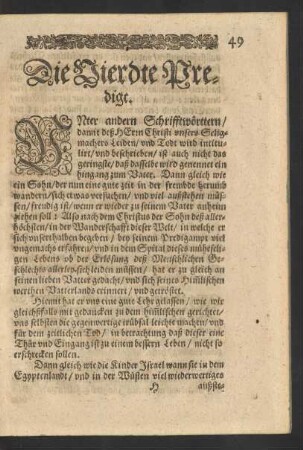 49
Die Vierdte Pre-
digt.
VNter andern Schrifftwörttern /
damit deß HErrn Christi vnsers Selig-
machers Leiden / vnd Todt wird intitu-
lirt / vnd beschrieben / ist auch nicht das
geringste / daß dasselbe wird genennet ein
hingang zum Vater. Dann gleich wie
ein Sohn / der nun eine gute zeit in der frembde herumb
wandern / sich etwas versuchen / vnd viel außstehen müs-
sen / frewdig ist / wenn er wieder zu seinem Vater anheim
ziehen soll: Also nach dem Christus der Sohn deß aller-
höchsten / in der Wanderschafft dieser Welt / in welche er
sich vnserthalben begeben / bey seinem Predigampt viel
vngemachs erfahren / vnd in dem Spital dieses müheseli-
gen Lebens ob der Erlösung deß Menschlichen Ge-
schlechts allerley sich leiden müssen / hat er zu gleich an
seinen lieben Vater gedacht / vnd sich seines Himlischen
werthen Vatterlands erinnert / vnd getröstet.
Hiemit hat er vns eine gute Lehr gelassen / wie wir
gleichsfalls mit gedancken zu dem himlischen gerichtet /
vns selbsten die gegenwertige trübsal leichte machen / vnd
für dem zeitlichen Tod / in betrachtung daß dieser eine
Thür vnd Eingang ist zu einem bessern Leben / nicht so
erschrecken sollen.
Dann gleich wie die Kinder Israel wann sie in dem
Egyptenlandt / vnd in der Wüsten viel wiederwertiges
H außste-